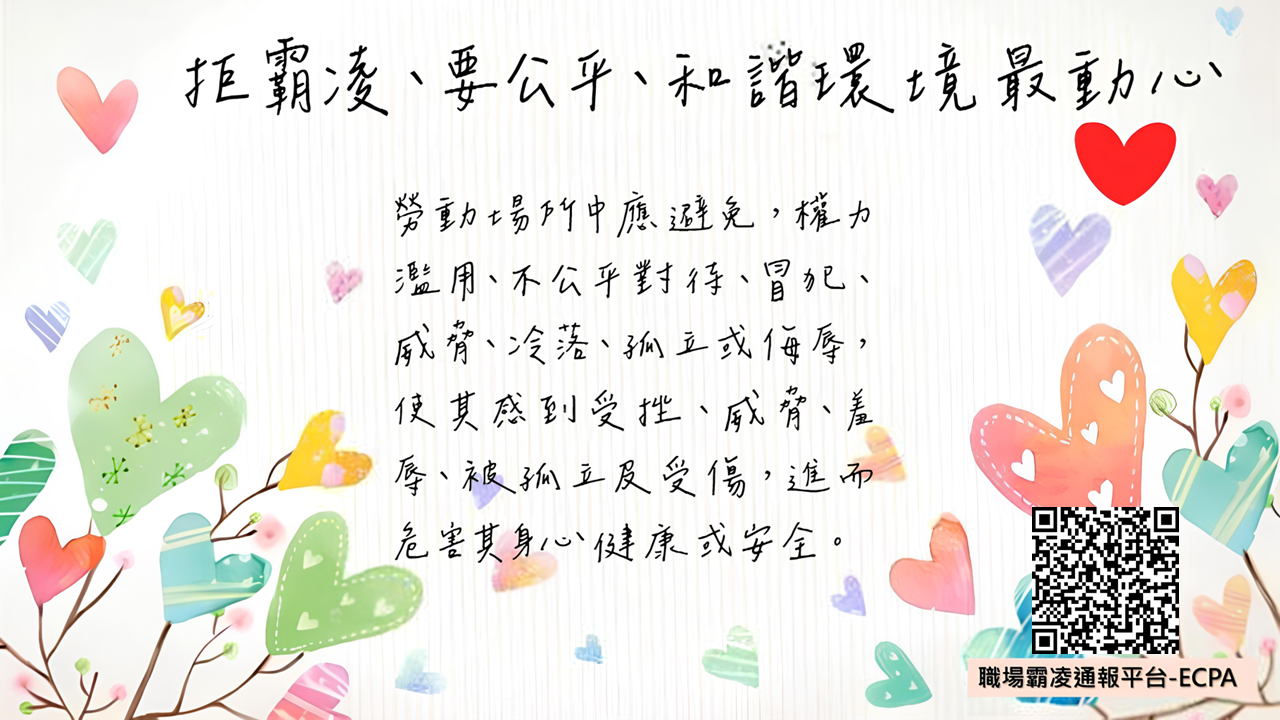 拒霸凌、要公平、和諧環境最動心
勞動場所中應避免，權力
濫用、不公平對待、冒犯、
威脅、冷落、孤立或侮辱，
使其感到受挫、威脅、羞
辱、被孤立及受傷，進而
危害其身心健康或安全。
職場霸凌通報平台-ECPA